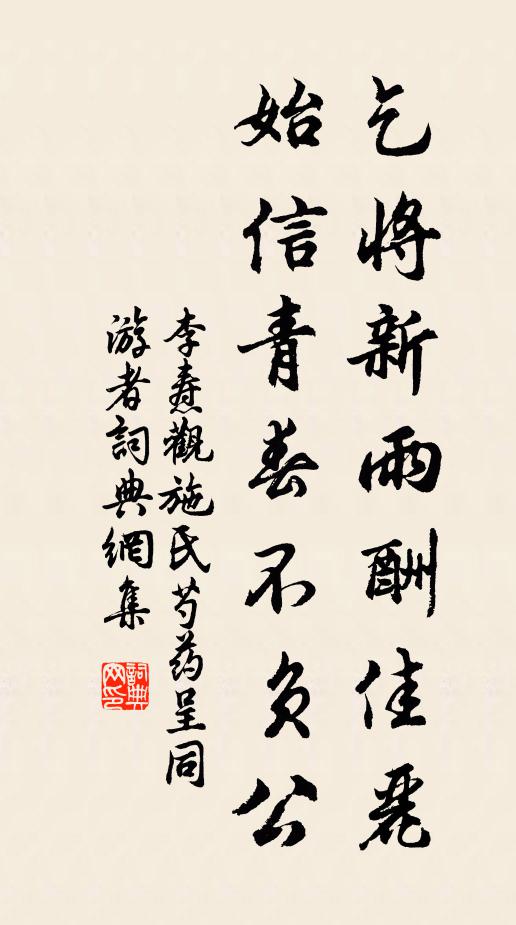 乞將新雨酬佳麗
始信青春不負公
李燾觀施氏芍药呈同
游者詞典網集
詞典
网印